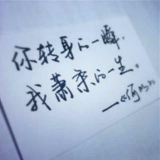 你转身的一瞬，
我萧条的一生。